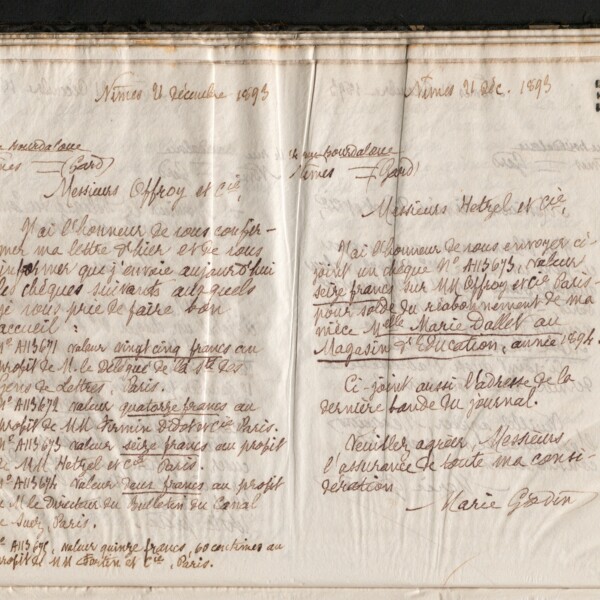 Nîmes 21 décembre 1893
Bourdaloue
(Gard)
Messieurs Offroy et Cie,
J'ai l'honneur de vous confir-
mer ma lettre d'hier et de vous
informer que j'envoie aujourd'hui
les chèques suivants auxquels
je vous prie de faire bon
accueil :
N° A113671 valeur vingt cinq francs au
profit de M. le Délégué de la Sté des
Gens de Lettres, Paris.
N° A113672 valeur quatorze francs au
profit de MM Firmin Didot et Cie Paris.
N° A113673 valeur seize francs au profit
de MM Hetzel et Cie Paris.
N° A113674 valeur deux francs au profit
de M le Directeur du Bulletin du Canal
de Suez, Paris.
N° A113675, valeur quinze francs, 60 centimes au
profit de MM et Cie, Paris.
Nîmes 21 déc. 1893
rue Bourdaloue
Nîmes (Gard)
Messieurs Hetzel et Cie,
J'ai l'honneur de vous envoyer ci-
joint un chèque N° A113673, valeur
seize francs sur MM Offroy et Cie Paris-
pour solde du réabonnement de ma
nièce Melle Marie Dallet au
Magasin d'Education, année 1894.
Ci-joint aussi l'adresse de la
dernière bande du journal.
Veuillez agréer, Messieurs
l'assurance de toute ma consi-
dération
Marie Godin